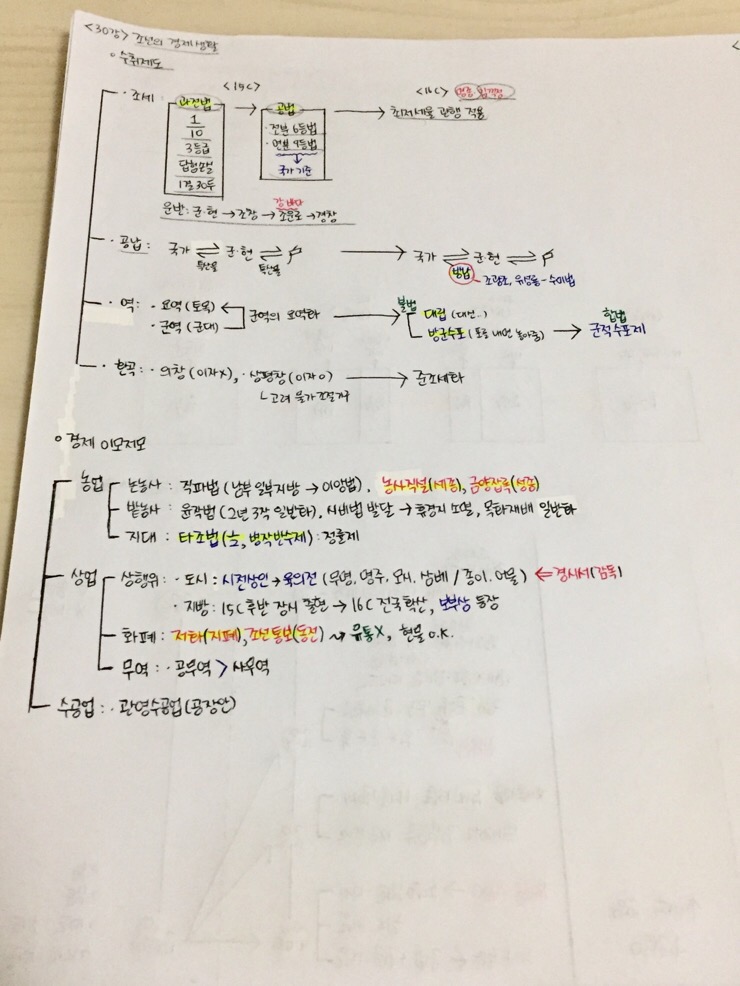 <30강> 조선의 경제생활
○ 수취제도
<15C> <16C> 명종 임꺽정
· 조세 과전법 → 공법 → 최저세율 관행 적용
1/10 · 전분 6등법
3등급 · 연분 9등법
답험손실 ↓
1결 30두 국가 기준
강, 바다
운반: 군·현 → 조창 → 조운로 → 경창
· 공납: 국가 ⇌ 군·현 ⇌ → 국가 ⇌ 군·현 ⇌
특산물 특산물 방납 - 조광조, 유성룡 - 수미법
· 역: · 요역(토목) ← 군역의 요역화 → 불법 대립(대신..) 합법
· 군역(군대) 방군수포(포를 내면 놓아줌) → 군적수포제
· 환곡: · 의창(이자X), · 상평창(이자O) → 준조세화
ㄴ고려 물가조절기구
○ 경제 이모저모
농업 논농사: 직파법(남부 일부지방 → 이앙법), 농사직설(세종), 금양잡록(성종)
밭농사: 윤작법(2년 3작 일반화), 시비법 발달 → 휴경지 소멸, 목화재배 일반화
지대: 타조법(½, 병작반수제): 정률제
상업 상행위: · 도시: 시전상인 → 육의전(무명, 명주, 모시, 삼베/종이, 어물) ⇐ 경시서(감독)
· 지방: 15C 후반 장시 출현 → 16C 전국 확산, 보부상 등장
화폐: 저화(지폐), 조선통보(동전) → 유통X, 현물 O.K.
무역: · 공무역 > 사무역
수공업: · 관영수공업(공장안)